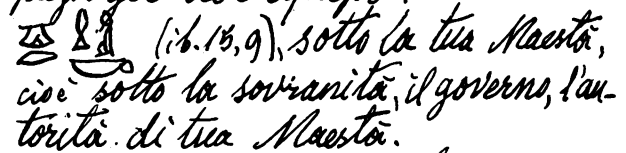 (ib. 15, 9), sotto la tua Maestà,
cioè sotto la sovranità, il governo, l'au-
torità di tua Maestà.